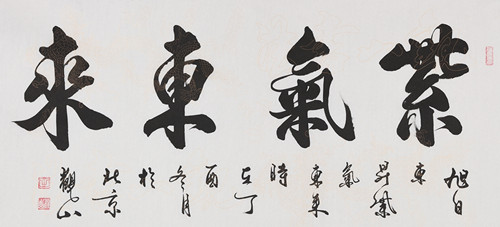 紫氣東來
旭日
東
昇紫
氣
東来
時
在丁
酉
冬月
於
北京
觀山